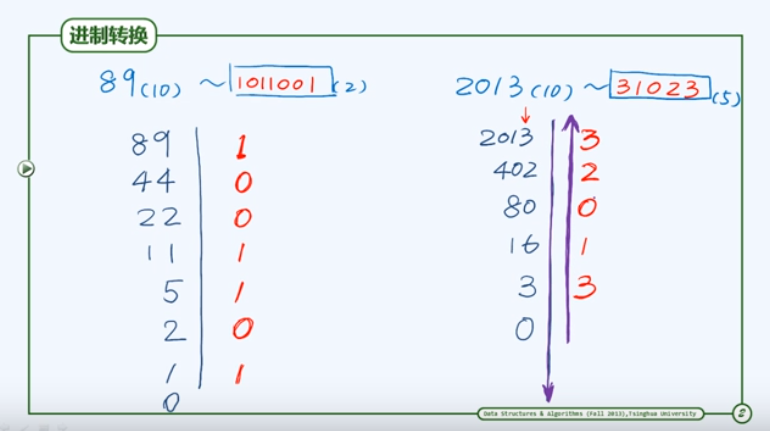 进制转换
89(10) ~ 1011001(2)
2013(10) ~ 31023(5)
89 1
44 0
22 0
11 1
5 1
2 0
1 1
0
2013 3
402 2
80 0
16 1
3 3
0
Data Structures & Algorithms (Fall 2013),Tsinghua University
2